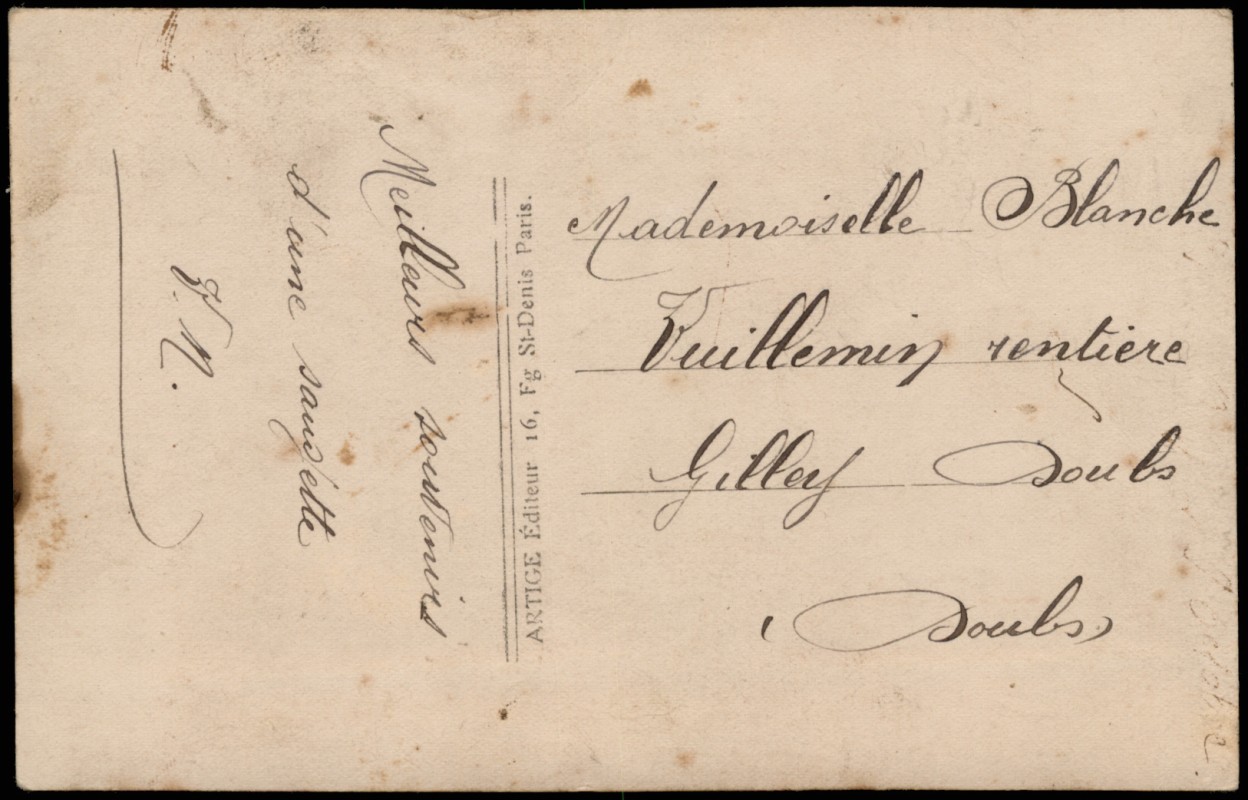 Meilleurs souvenirs
d'une saugette
V. N.
ARTIGE Éditeur 16, Fg St-Denis Paris.
Mademoiselle Blanche
Vuillemin rentière
Gilley Doubs
(Doubs)